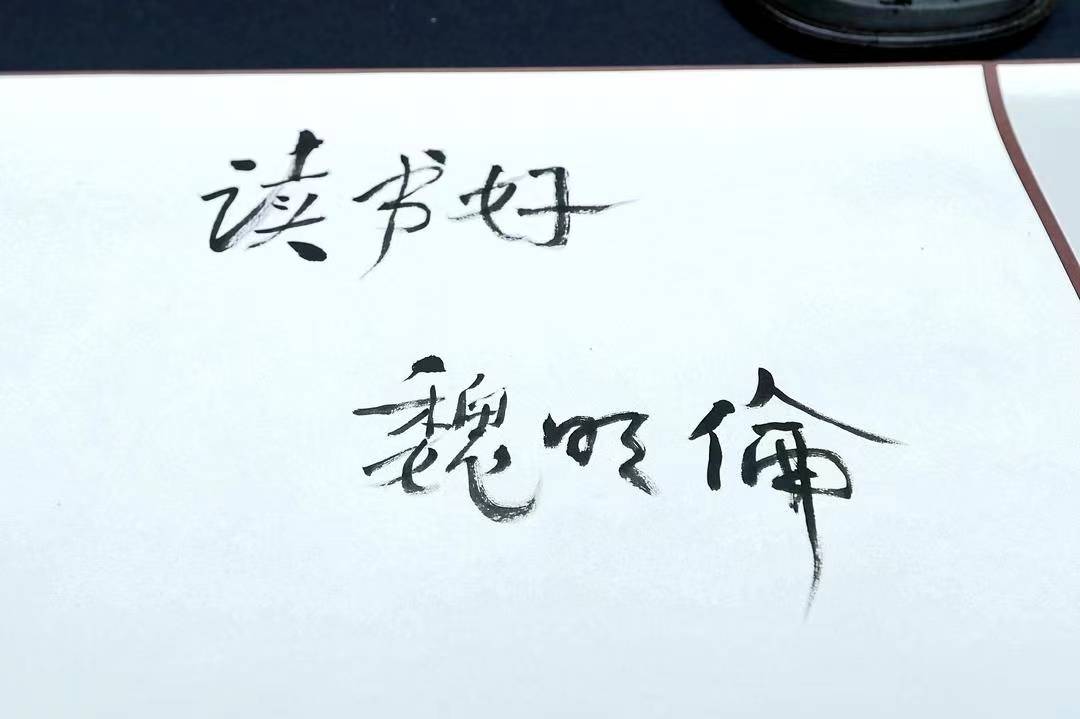 读书好
魏明倫